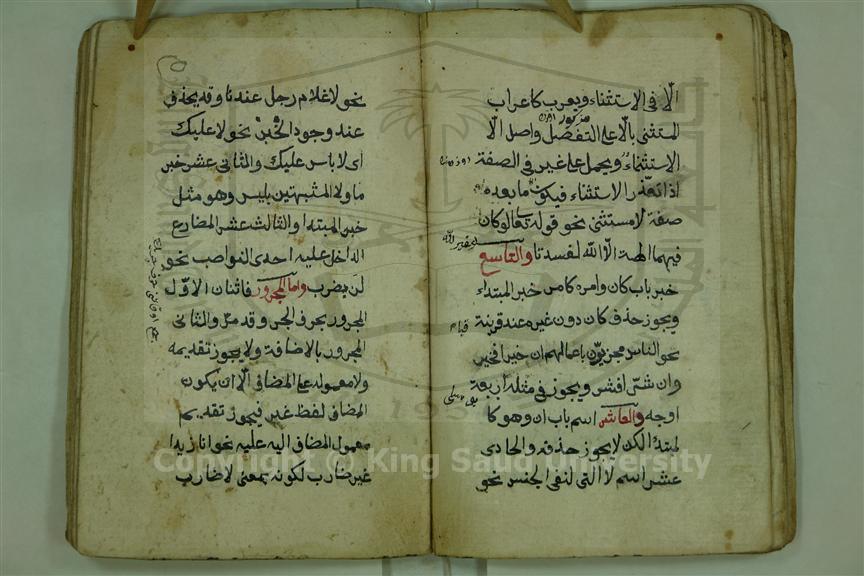 الّا فى الاستثناء ويعرب كاعراب
المستثنى بالّا على التفصيل واصل الّا
الاستثناء ويحمل على غير فى الصفة
اذا تعذّر الاستثناء فيكون ما بعده
صفة لا مستثنى نحو قوله تعالى لو كان
فيهما الهة الّا الله لفسدتا والتاسع
خبر باب كان وامره كامر خبر المبتداء
ويجوز حذف كان دون غيره عند قرينة
نحو الناس مجزيّون باعمالهم ان خيرا فخير
وان شرّا فشر ويجوز فى مثله اربعة
اوجه والعاشر اسم باب ان وهو كا
لمبتدأ لكن لا يجوز حذفه والحادى
عشر اسم لا التى لنفى الجنس نحو
نحو لا غلام رجل عندنا وقد يحذف
عند وجود الخبر نحو لا عليك
اى لا باس عليك والثانى عشر خبر
ما ولا المشبهتين بليس وهو مثل
خبر المبتدا والثالث عشر المضارع
الداخل عليه احدى النواصب نحو
لن يضرب واما المجرور فاثنان الاوّل
المجرور بحرف الجر وقد مرّ والثانى
المجرور بالاضافة ولا يجوز تقديمه
ولا معموله على المضاف الّا ان يكون
المضاف لفظ غير فيجوز تقديم
معمول المضاف اليه عليه نحو انا زيدا
غير ضارب لكونه بمعنى لا ضارب
Copyright © King Saud University
195